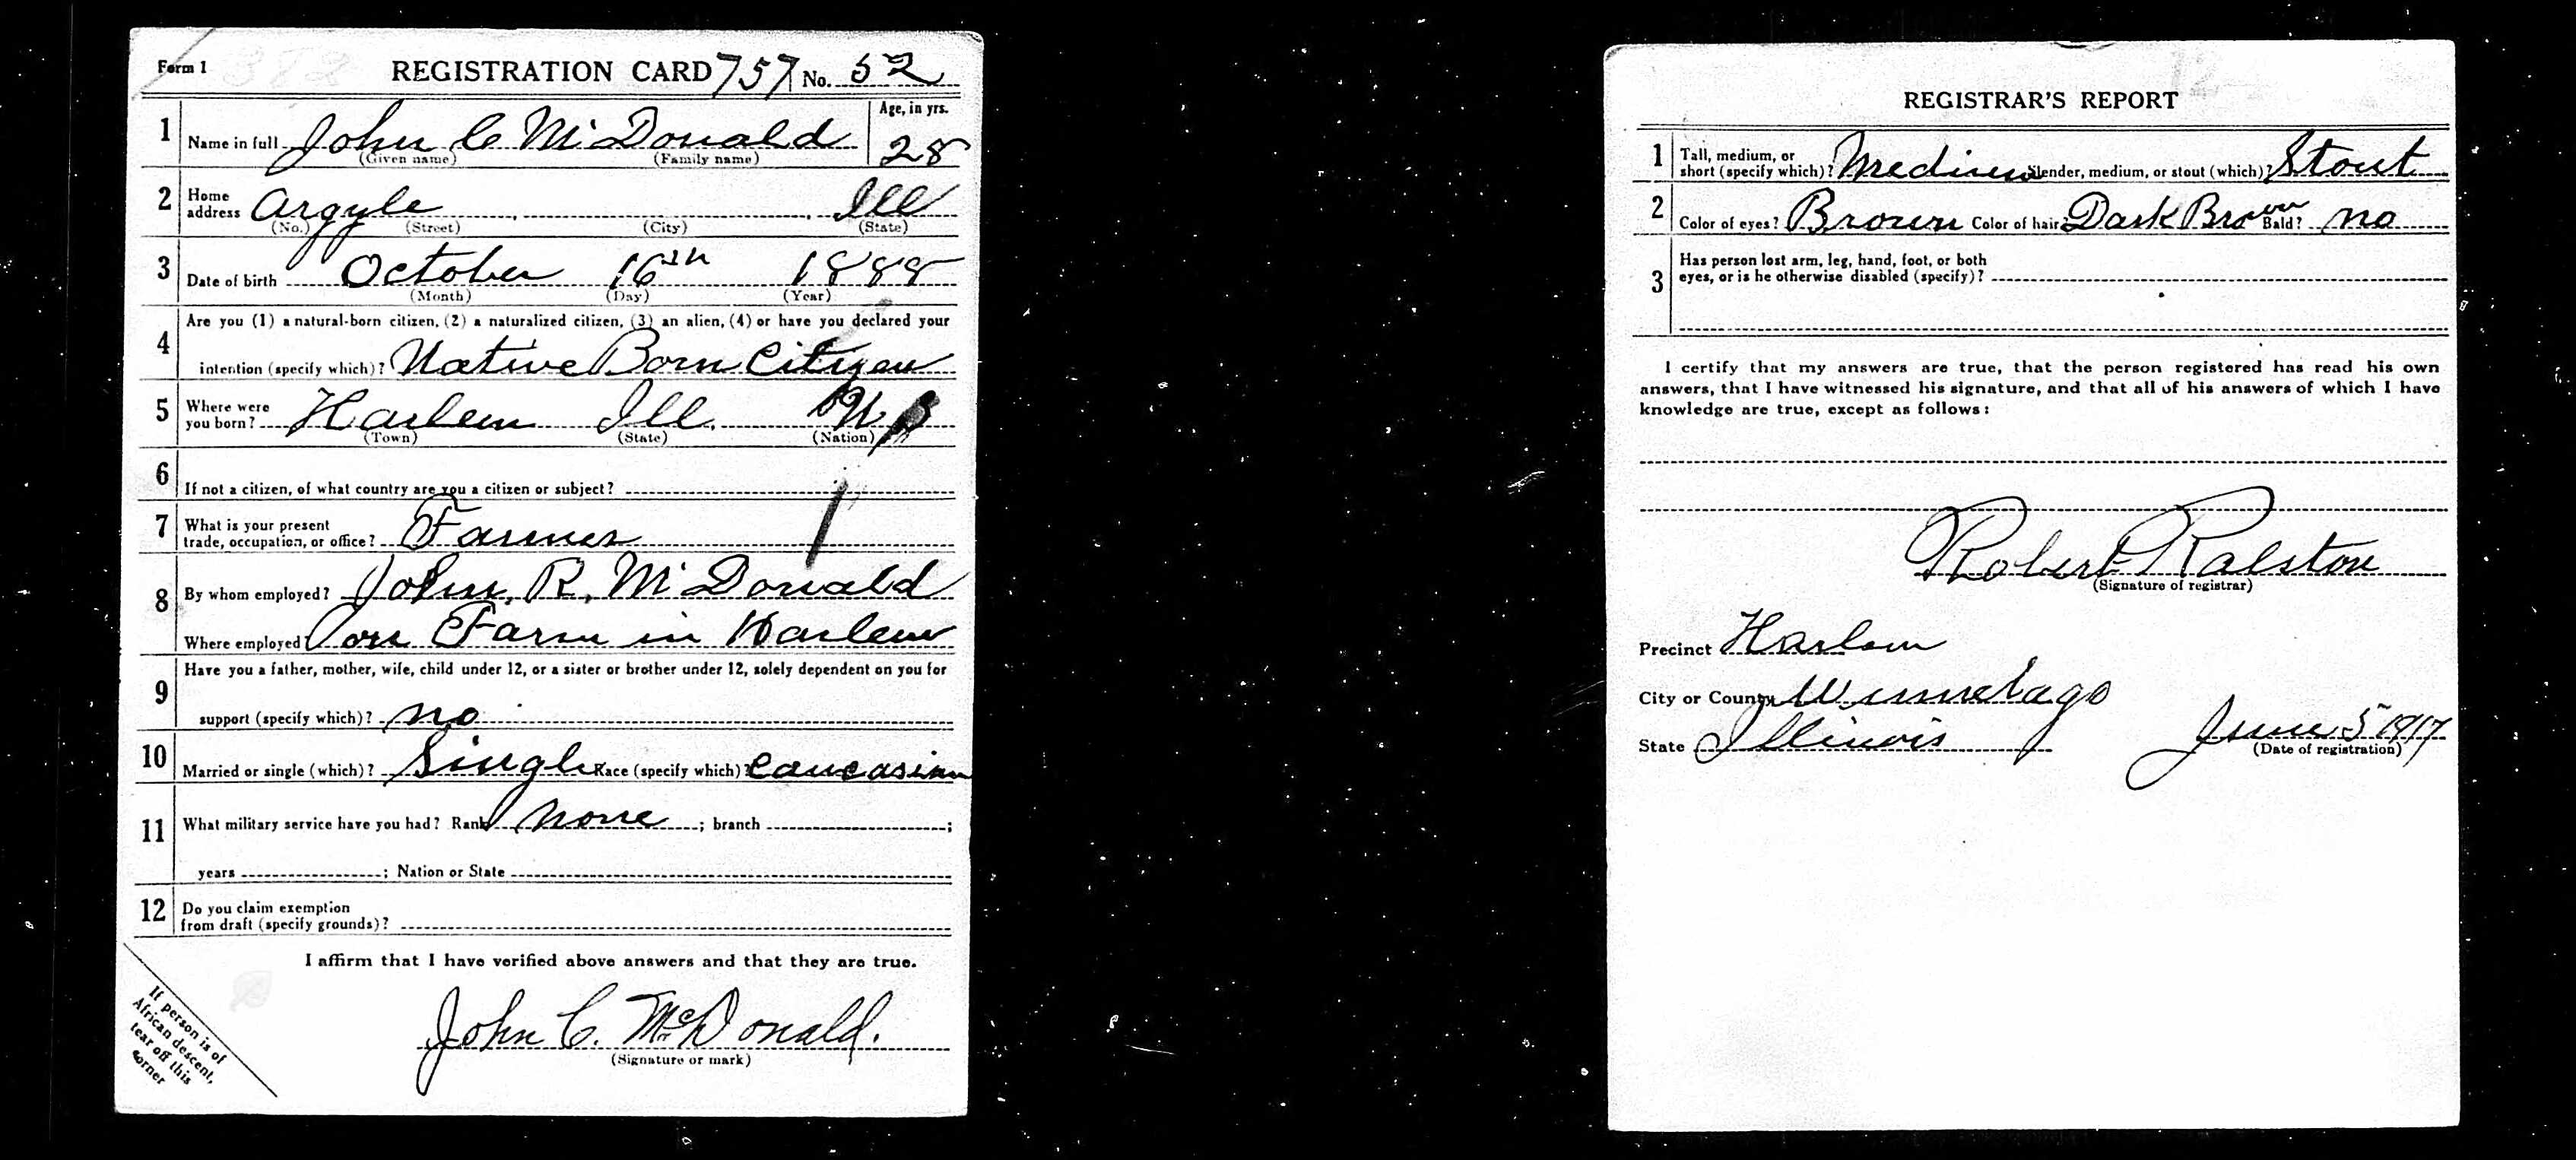 Form 1 REGISTRATION CARD 757 No. 52
1 Name in full John C McDonald Age, in yrs. 28
(Given name) (Family name)
2 Home address Argyle Ill
(No.) (Street) (City) (State)
3 Date of birth October 16th 1888
(Month) (Day) (Year)
4 Are you (1) a natural-born citizen, (2) a naturalized citizen, (3) an alien, (4) or have you declared your
intention (specify which)? Native Born Citizen
5 Where were you born? Harlem Ill.
(Town) (State) (Nation)
6 If not a citizen, of what country are you a citizen or subject?
7 What is your present
trade, occupation, or office? Farmer
8 By whom employed? John. R. McDonald
Where employed? on Farm in Harlem
9 Have you a father, mother, wife, child under 12, or a sister or brother under 12, solely dependent on you for
support (specify which)? no
10 Married or single (which)? Single Race (specify which)? Caucasian
11 What military service have you had? Rank none ; branch ;
years ; Nation or State
12 Do you claim exemption
from draft (specify grounds)?
I affirm that I have verified above answers and that they are true.
John C. McDonald.
(Signature or mark)
If person is of
African descent,
tear off this
corner
REGISTRAR'S REPORT
1 Tall, medium, or
short (specify which)? Medium Slender, medium, or stout (which)? Stout
2 Color of eyes? Brown Color of hair? Dark Brown Bald? no
3 Has person lost arm, leg, hand, foot, or both
eyes, or is he otherwise disabled (specify)?
I certify that my answers are true, that the person registered has read his own
answers, that I have witnessed his signature, and that all of his answers of which I have
knowledge are true, except as follows:
Robert Ralston
(Signature of registrar)
Precinct Harlem
City or County Winnebago
State Illinois June 5 1917
(Date of registration)